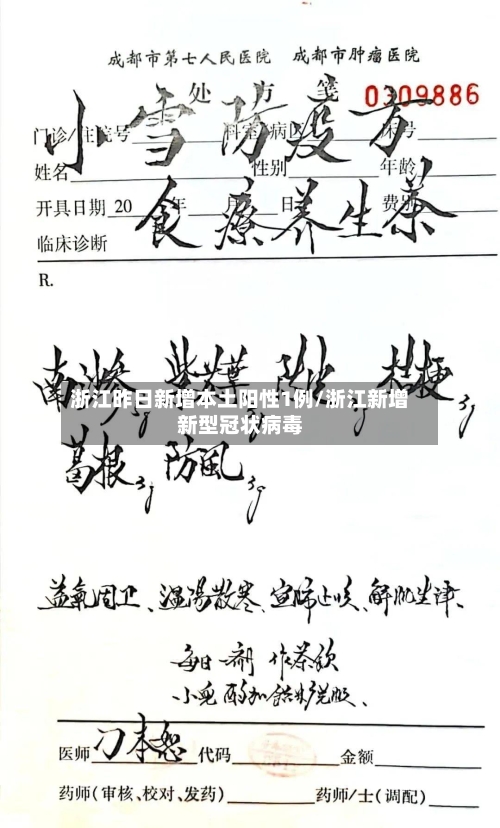 成都市第七人民医院 成都市肿瘤医院
处 方 笺 0309886
小雪防疫方
门诊/住院号 科室/病区 床号
姓名 性别 年龄
食療养生茶
开具日期 20 年 月 日 费别
临床诊断
R.
南沙参 紫苏 陈皮 桔梗3g
浙江昨日新增本土阳性1例/浙江新增
新型冠状病毒
葛根3g 防風3g
益氣固卫、温阳散寒、宣肺止咳、解肌生津、
每日一剂 作茶饮
小兒酌加
医师 刁本恕 代码 金额
药师(审核、校对、发药) 药师/士(调配)